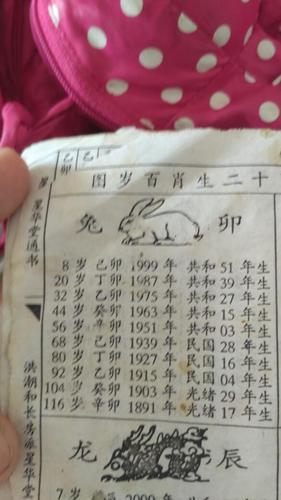 乙卯
乙
十二生肖百岁图
兔 卯
8 岁 己卯 1999 年 共和 51 年生
20 岁 丁卯 1987 年 共和 39 年生
32 岁 乙卯 1975 年 共和 27 年生
44 岁 癸卯 1963 年 共和 15 年生
56 岁 辛卯 1951 年 共和 03 年生
68 岁 己卯 1939 年 民国 28 年生
80 岁 丁卯 1927 年 民国 16 年生
92 岁 乙卯 1915 年 民国 04 年生
104 岁 癸卯 1903 年 光绪 29 年生
116 岁 辛卯 1891 年 光绪 17 年生
龙 辰
7 岁 2000 年
星华堂通书
洪潮和长房派星华堂